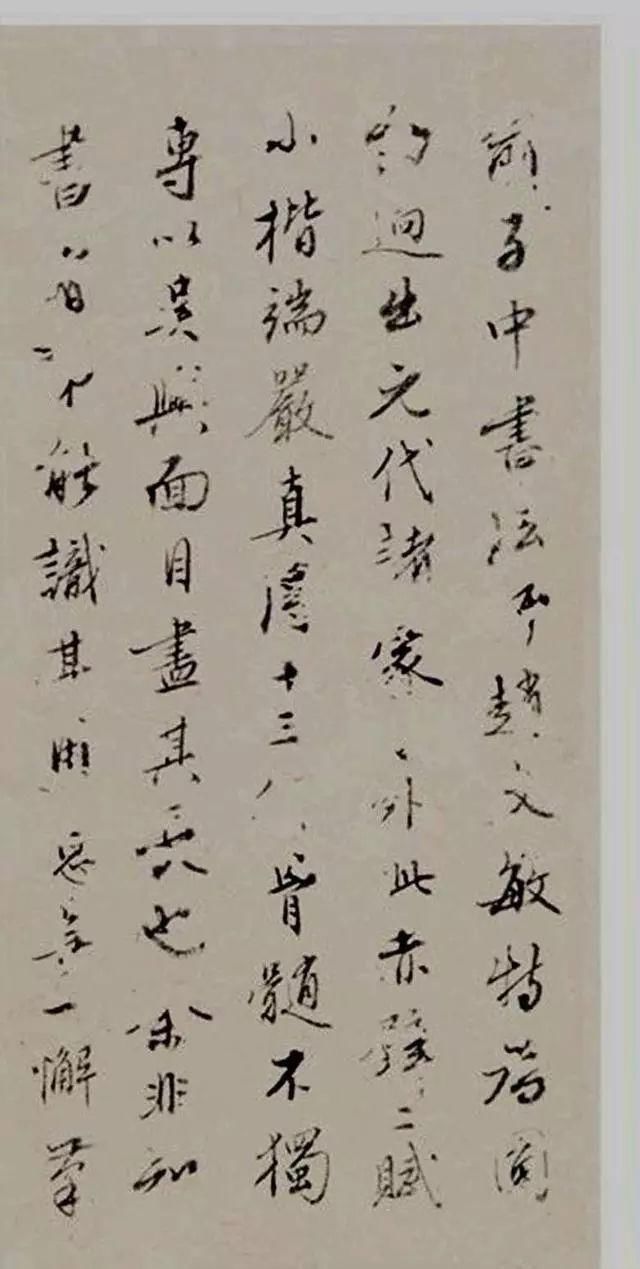 俞子中書法師趙文敏特為圓
勁迥出元代諸家之外此赤壁二賦
小楷端嚴真得十三行骨髓不獨
專以吳興面目盡其長也余非知
書者能識其用意無一懈筆